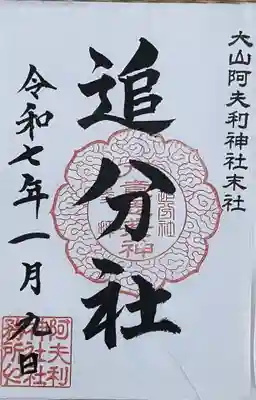 大山阿夫利神社末社
追分社
令和七年一月九日
追分社
阿夫利
神社社
務所之